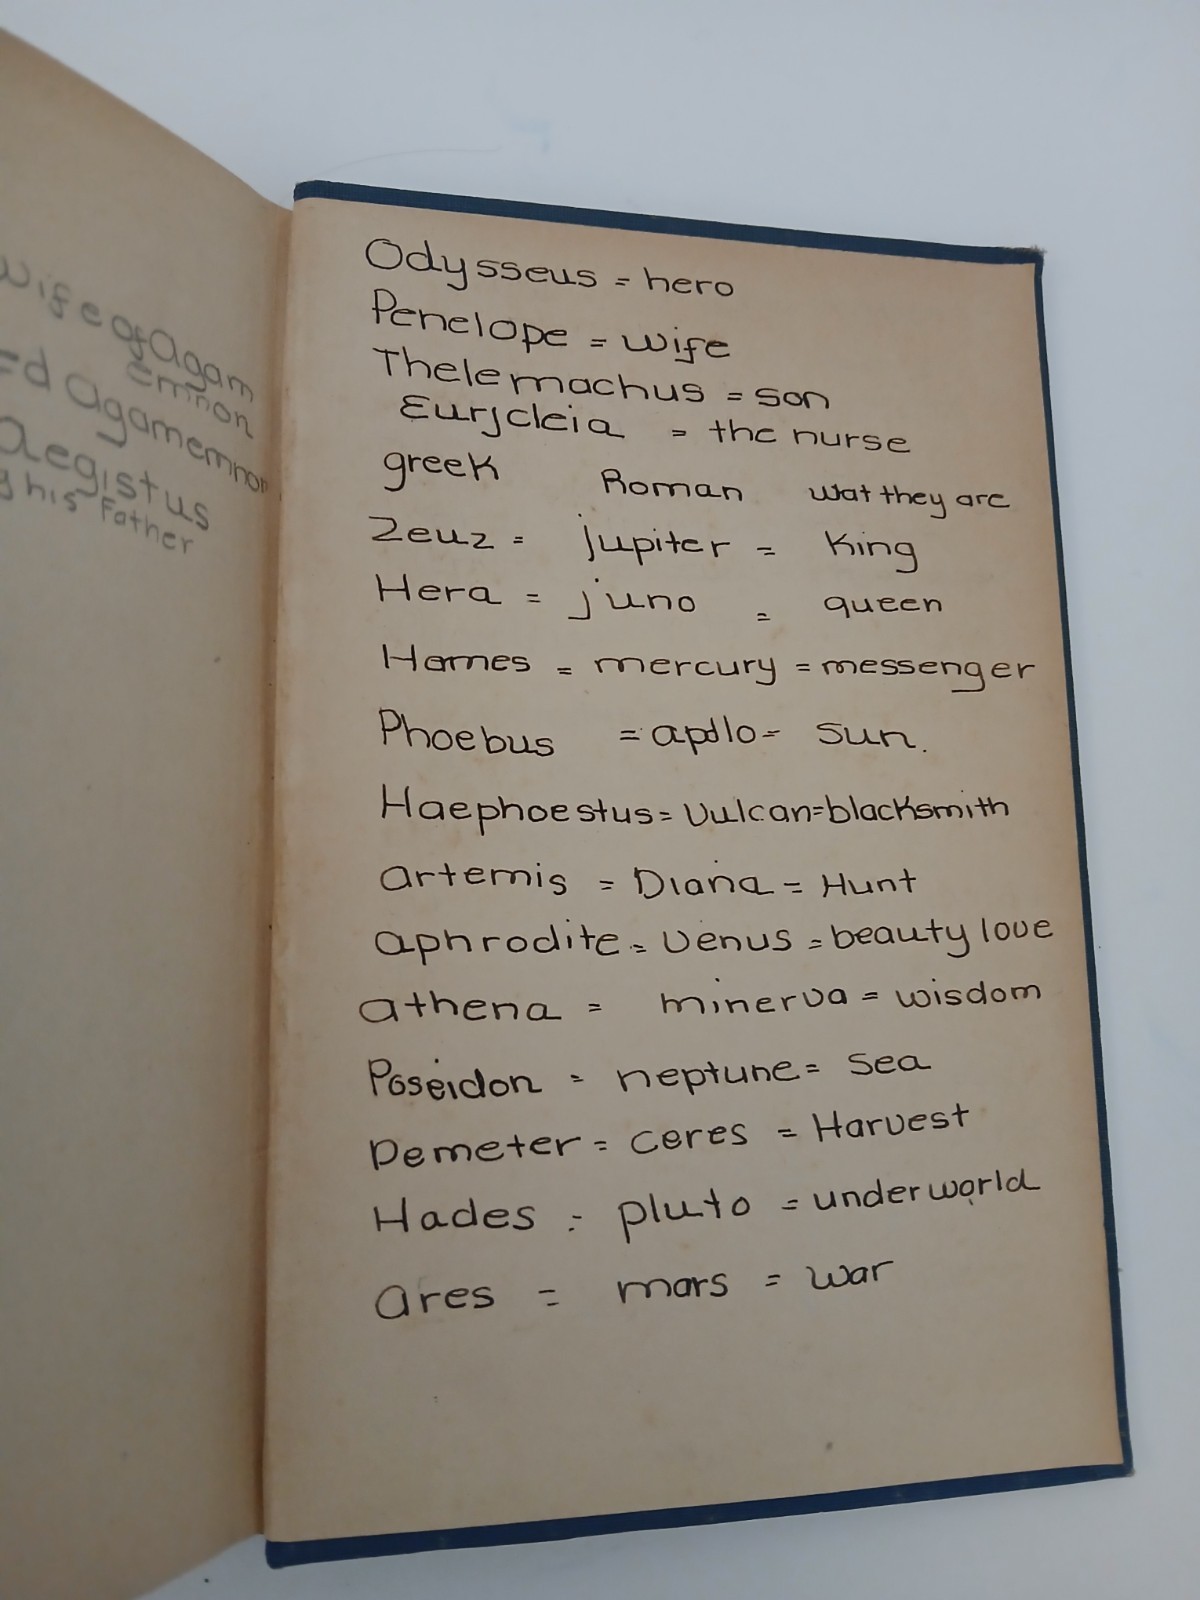 wife of agam
emnon
ed agamemnon
aegistus
g his Father
Odysseus = hero
Penelope = wife
Thelemachus = son
Eurjcleia = the nurse
greek Roman wat they are
Zeuz = jupiter = King
Hera = juno = queen
Hemes = mercury = messenger
Phoebus = apollo = sun.
Haephoestus = Vulcan = blacksmith
artemis = Diana = Hunt
aphrodite = venus = beauty love
athena = minerva = wisdom
Poseidon = neptune = sea
Demeter = ceres = Harvest
Hades = pluto = underworld
ares = mars = war